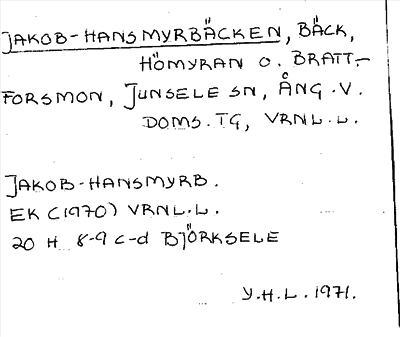 JAKOB-HANSMYRBÄCKEN, BÄCK,
HÖMYRAN O. BRATT-
FORSMON, JUNSELE SN, ÅNG.V.
DOMS.TG, VRNL.L.
JAKOB-HANSMYRB.
EK (1970) VRNL.L.
20 H 8-9 C-d BJÖRKSELE
Y.H.L. 1971.